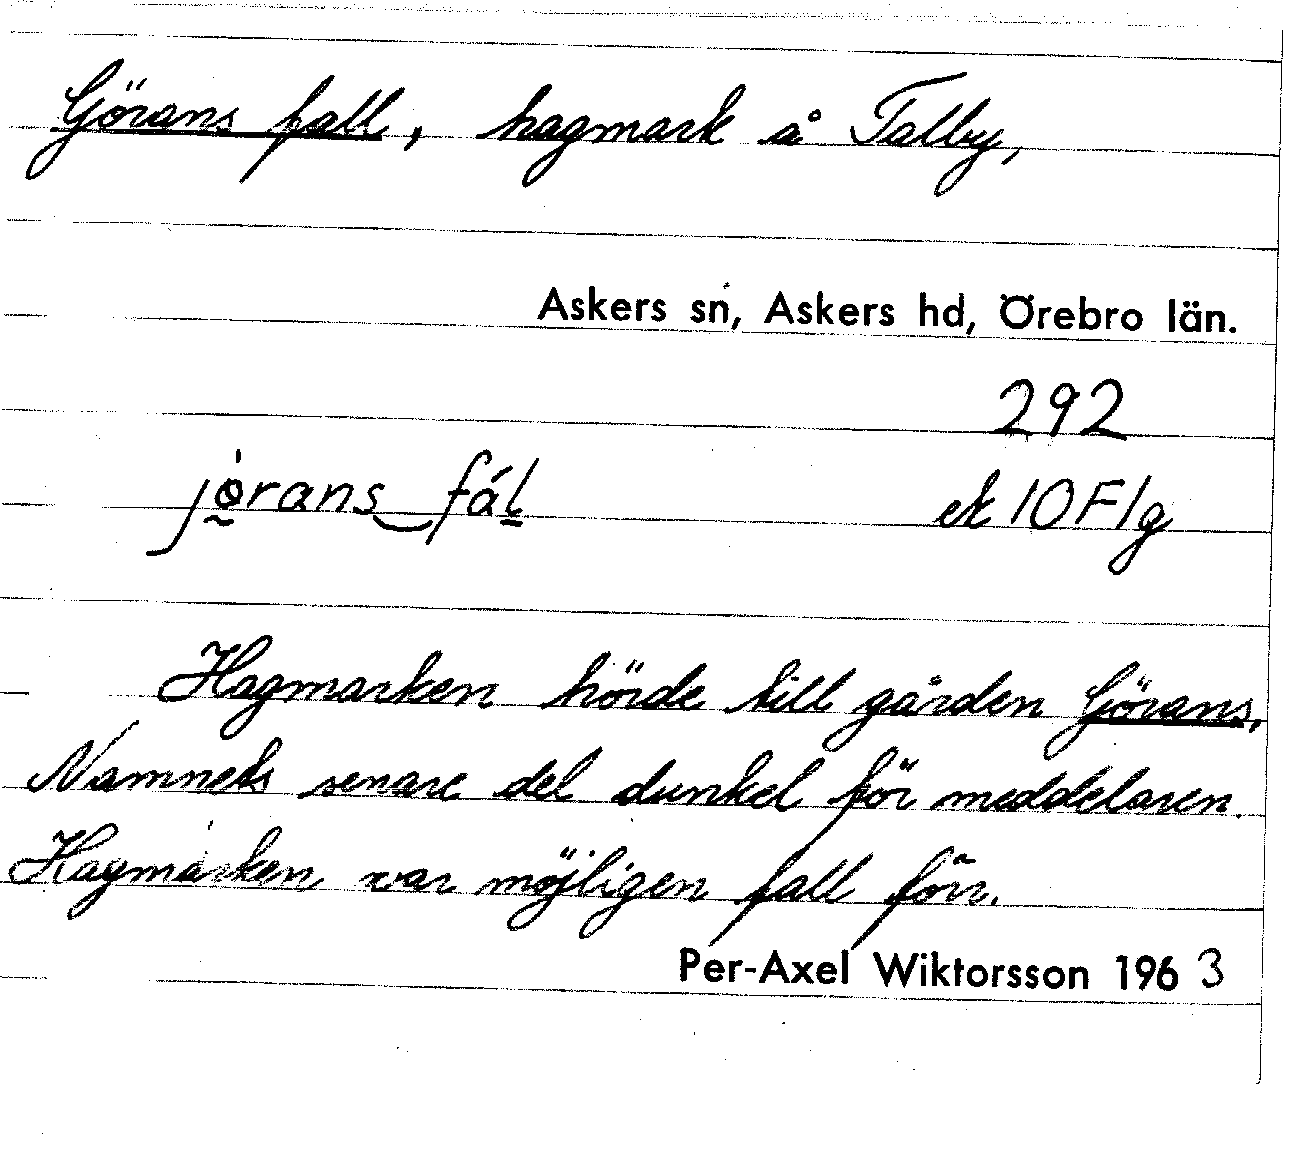 Görans fall, hagmark å Talby,
Askers sn, Askers hd, Örebro län.
292
jörans fál
ek 10F1g
Hagmarken hörde till gården Görans.
Namnets senare del dunkel för meddelaren.
Hagmarken var möjligen fall förr.
Per-Axel Wiktorsson 1963